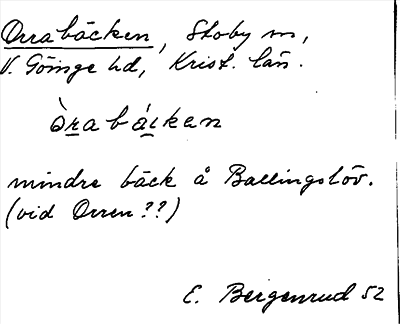 Orrabäcken, Stoby sn,
V. Göinge hd, Krist. län.
òrabáken
mindre bäck å Ballingslöv.
(vid Orren??)
E. Bergenrud 52